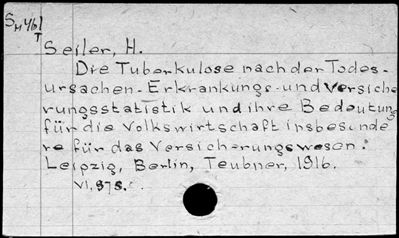 SH 461
T
Seiler, H.
Die Tuberkulose nach der Todes-
ursachen- Erkrankungs- und Versiche
rungsstatistik und ihre Bedeutung
für die Volkswirtschaft insbesonde
re für das Versicherungswesen.
Leipzig, Berlin, Teubner, 1916.
VI, 878.